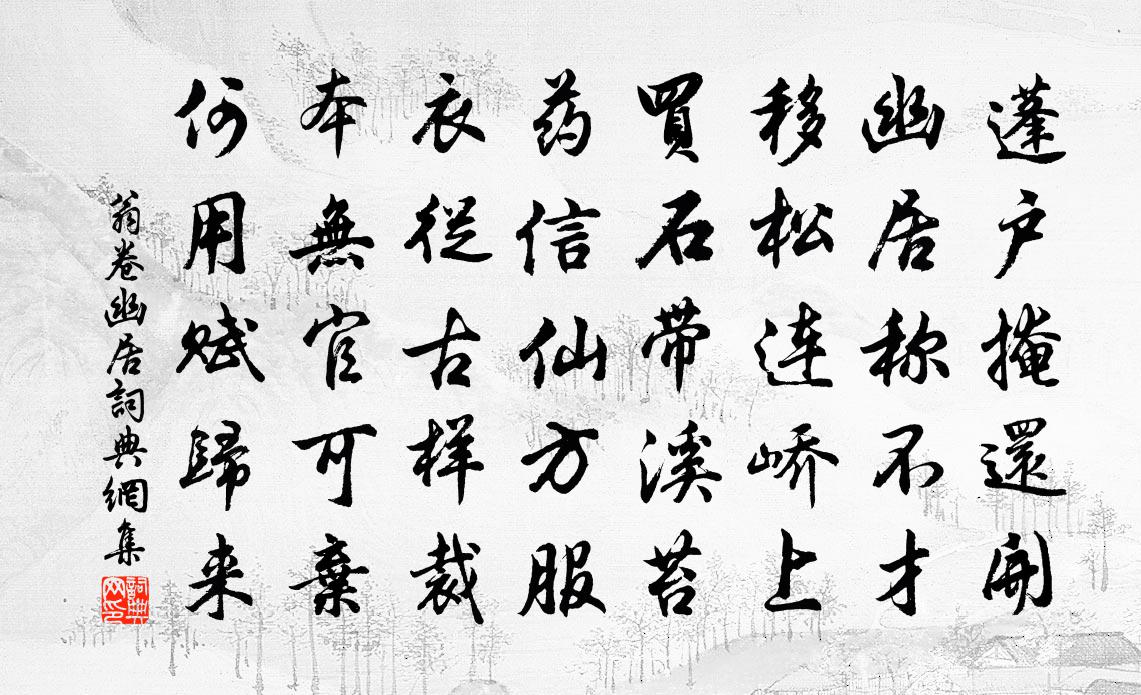 蓬户掩還開
幽居称不才
移松連嶠上
買石帶溪苔
药信仙方服
衣從古样裁
本無官可棄
何用赋歸来
翁卷幽居詞典網集
詞典網印